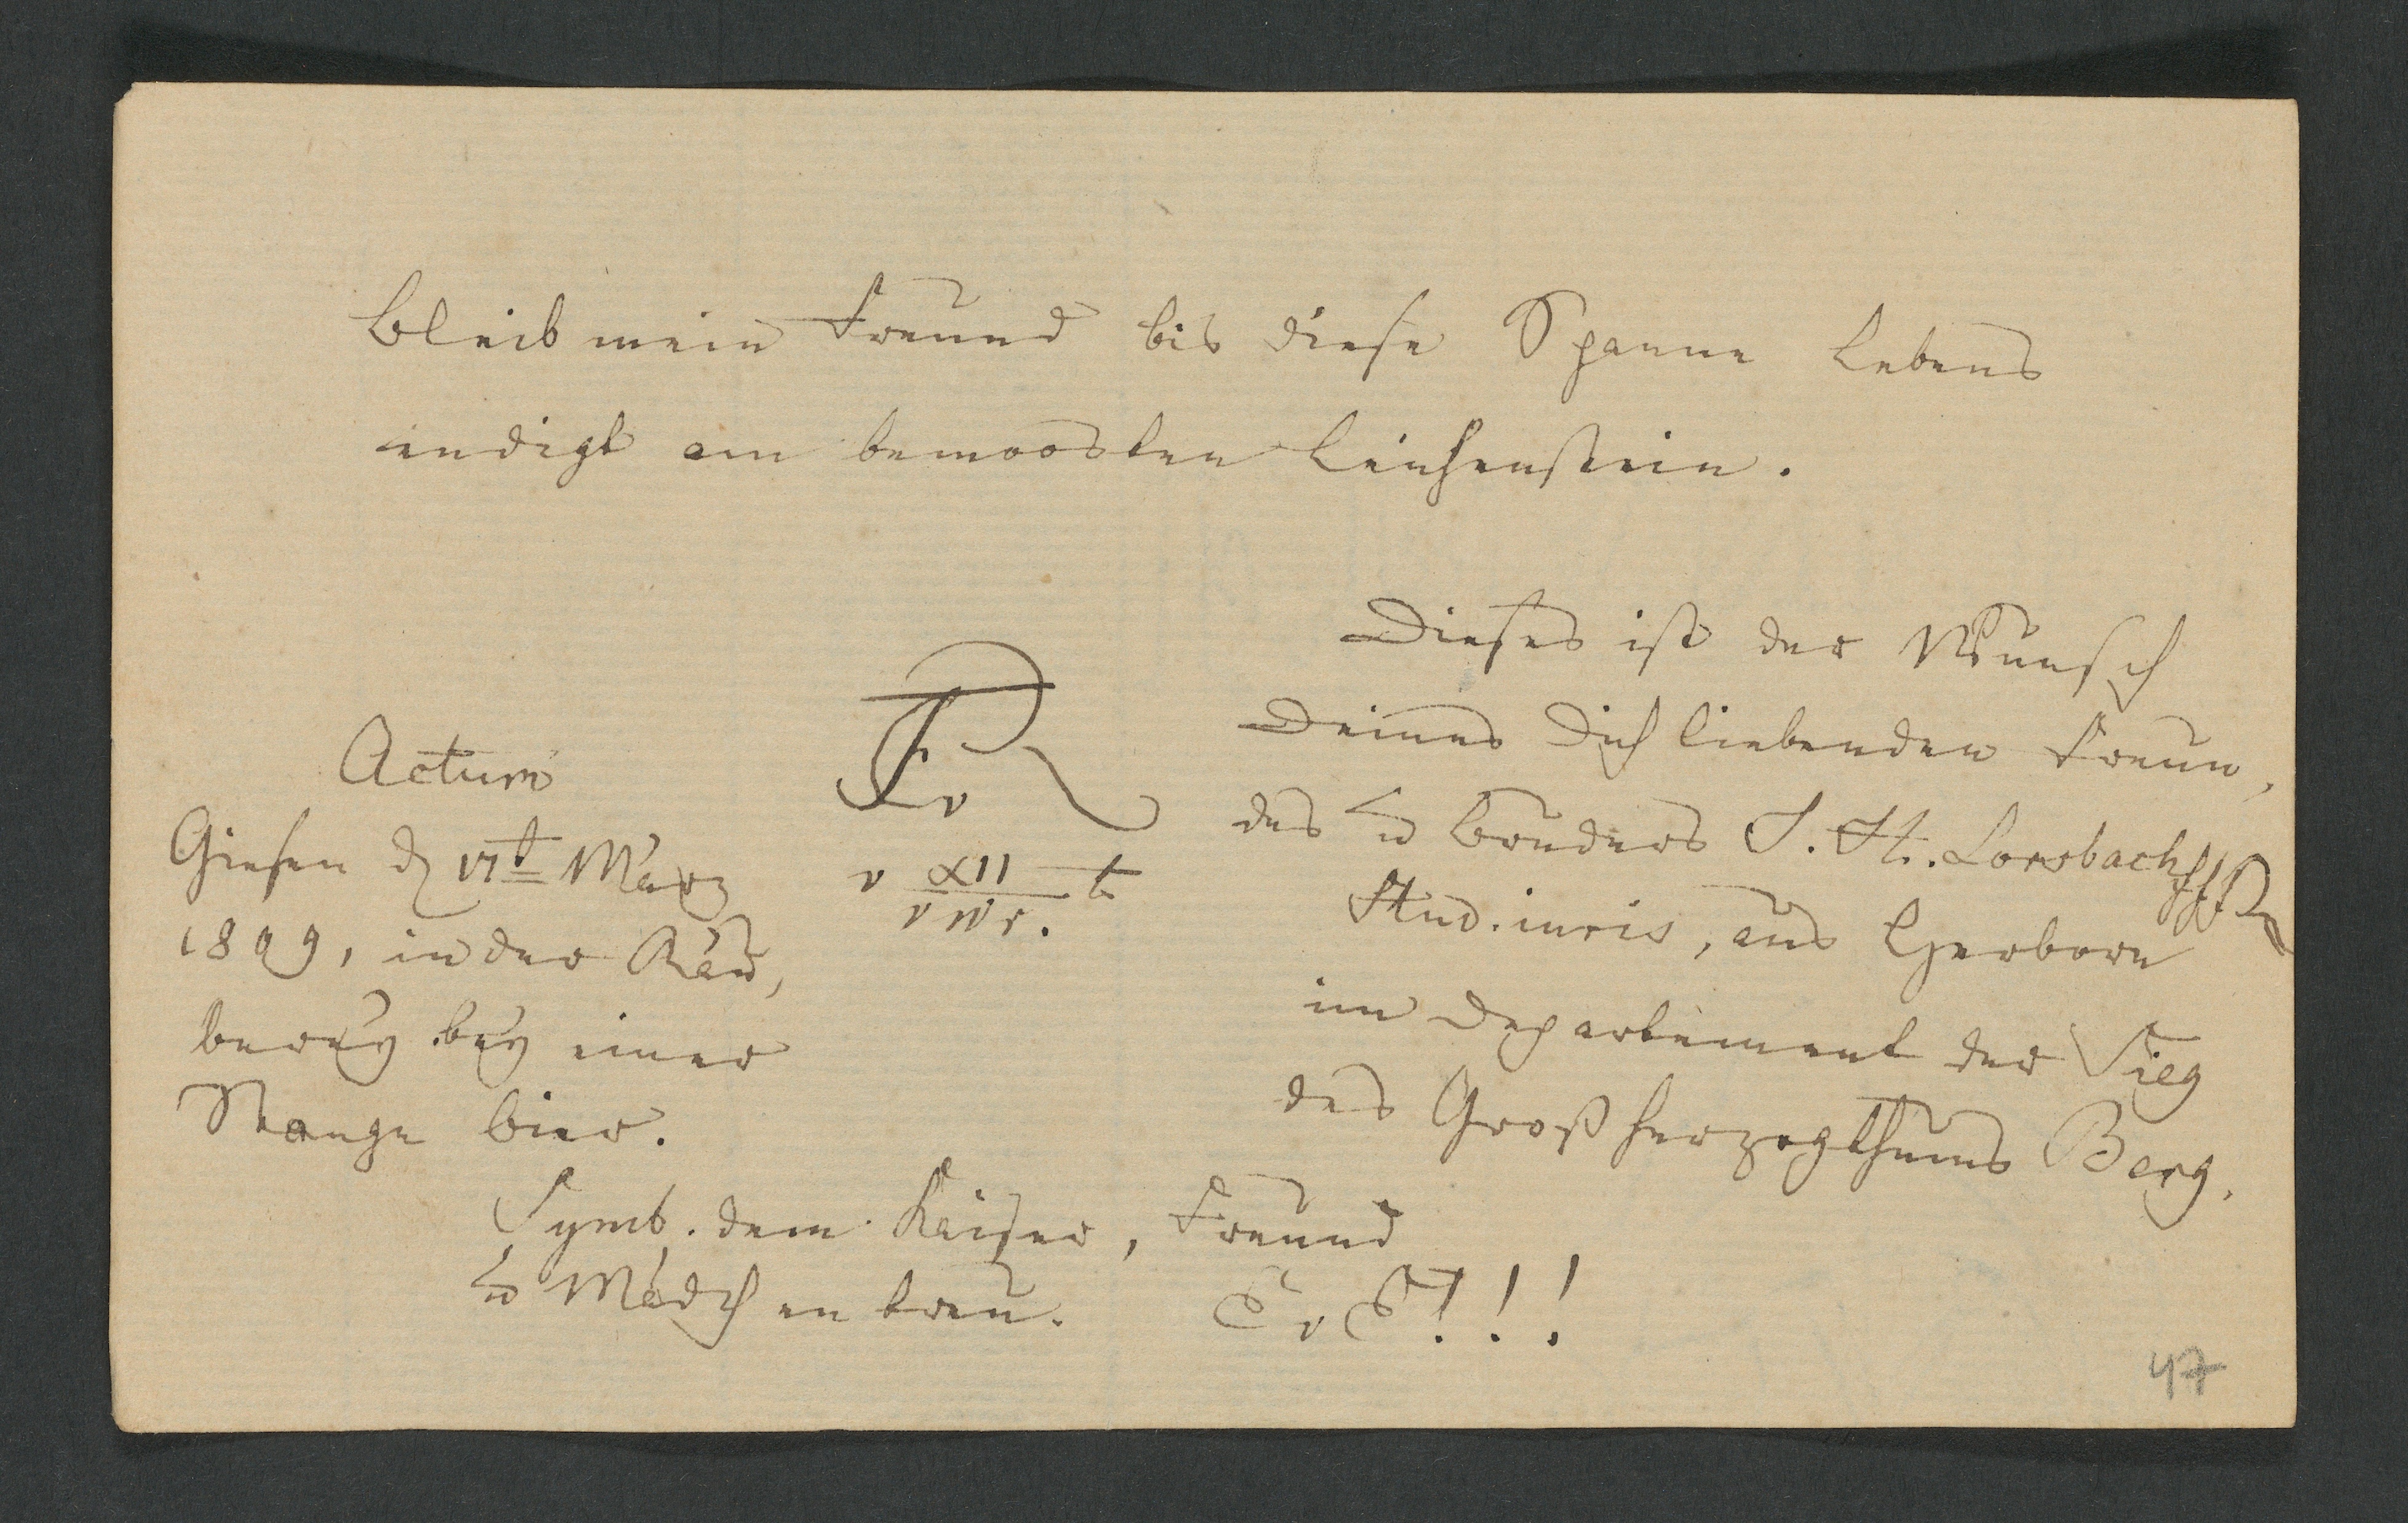 Bleib mein Freund bis diese Spanne Lebens
endigt am bemoosten Leichenstein.
Dieses ist der Wunsch
Deines Dich liebenden Freun,
des u Bruders J. H. Lorsbach
Stud. iuris, aus Herborn
im Departement der Sieg
des Großherzogthums Berg.
Actum
Giesen d 17t März
1809, in der Räu,
berey bey einer
Stange Bier.
Symb. dem Kaiser, Freund
u Mädchen treu.
47